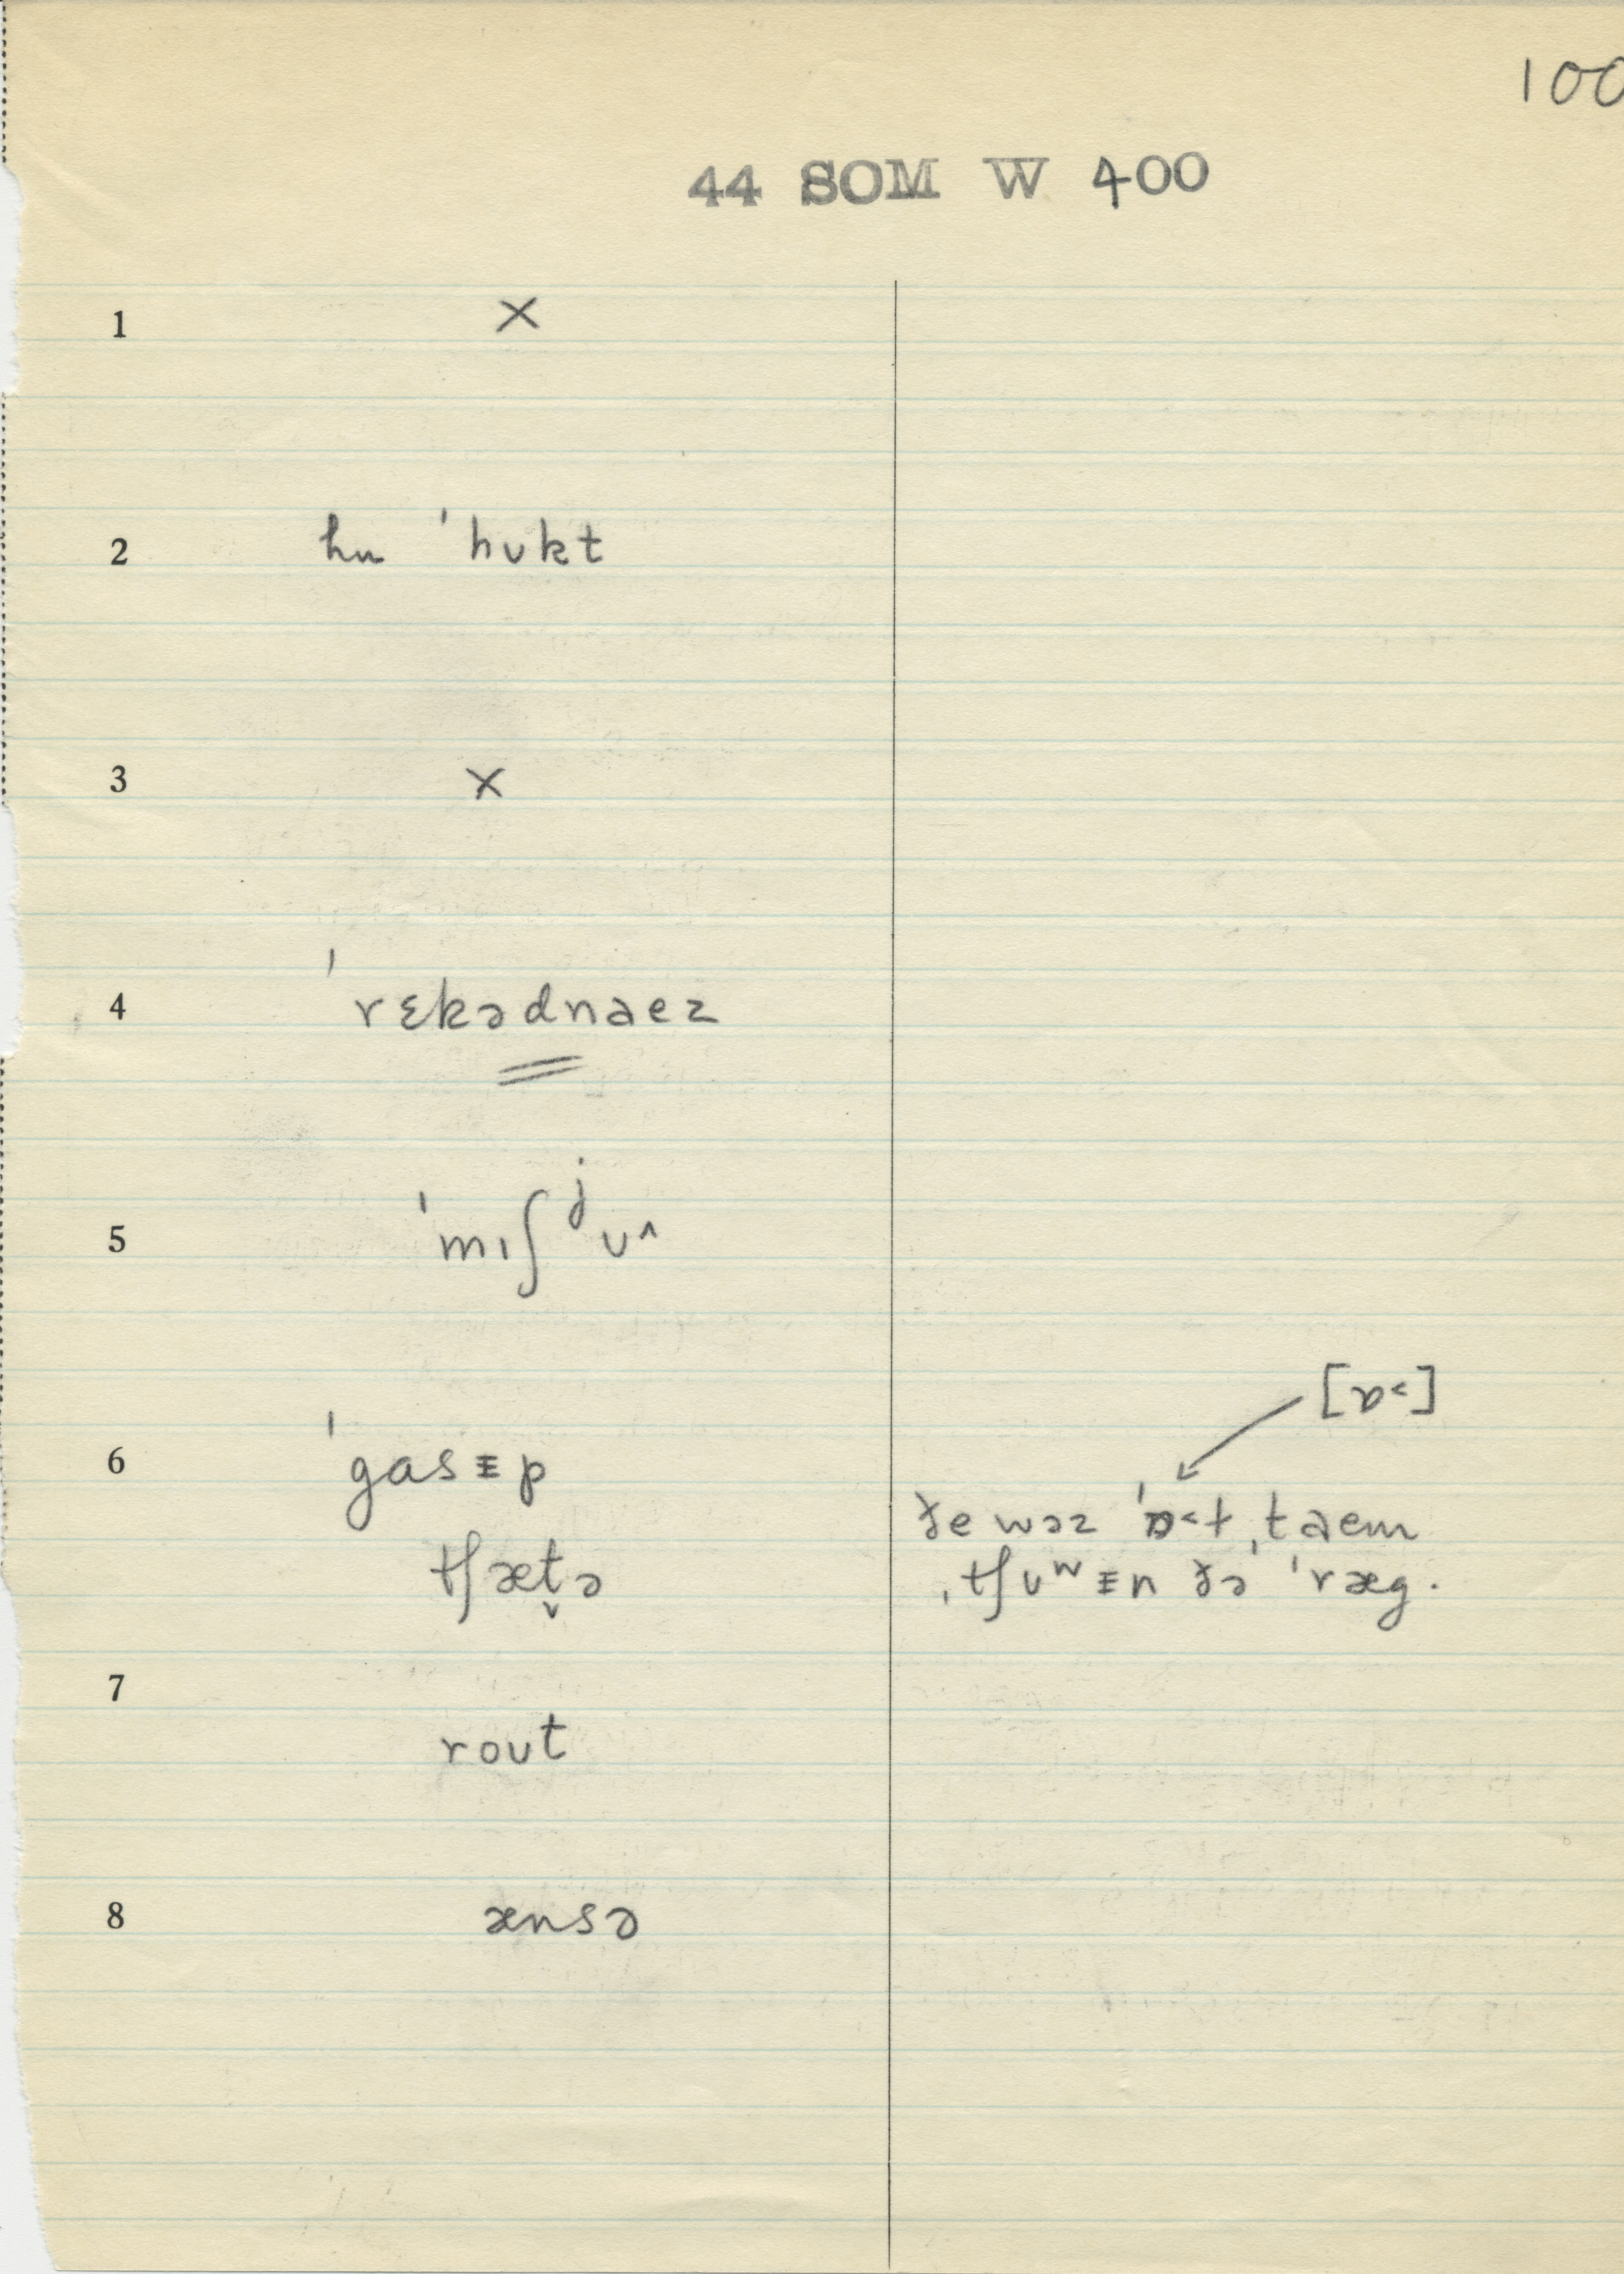 100
44 SOM W 400
1 ×
2 hu ˈhʊkt
3 ×
4 ˈrɛkədnaez
5 ˈmɪʃʲʊ^
[ɒ<]
6 ˈgasᵻp
tʃæt̬ə
ðe wəz ˈɒ<ɫ ˌtaem
ˌtʃʊʷᵻn ðə ˈræg.
7
rout
8 ænsə